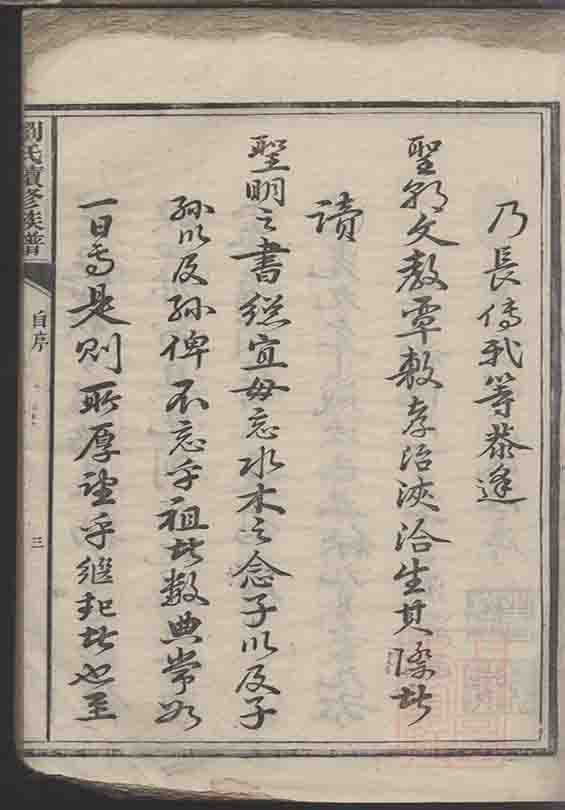 乃長傳我等恭逢
聖朝文教覃敷孝治浹洽生其際者
讀
聖明之書總宜毋忘水木之念子以及子
孫以及孫俾不忘乎祖者數典常如
一日焉是則所厚望乎繼起者也至
劉氏續修族譜
自序
三